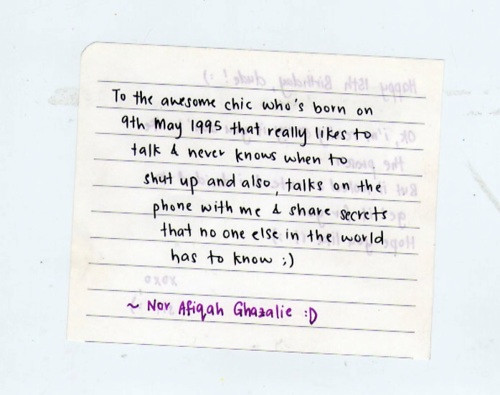 To the awesome chic who's born on
9th May 1995 that really likes to
talk & never knows when to
shut up and also, talks on the
phone with me & share secrets
that no one else in the world
has to know ;)
~ Nor Afiqah Ghazalie :D